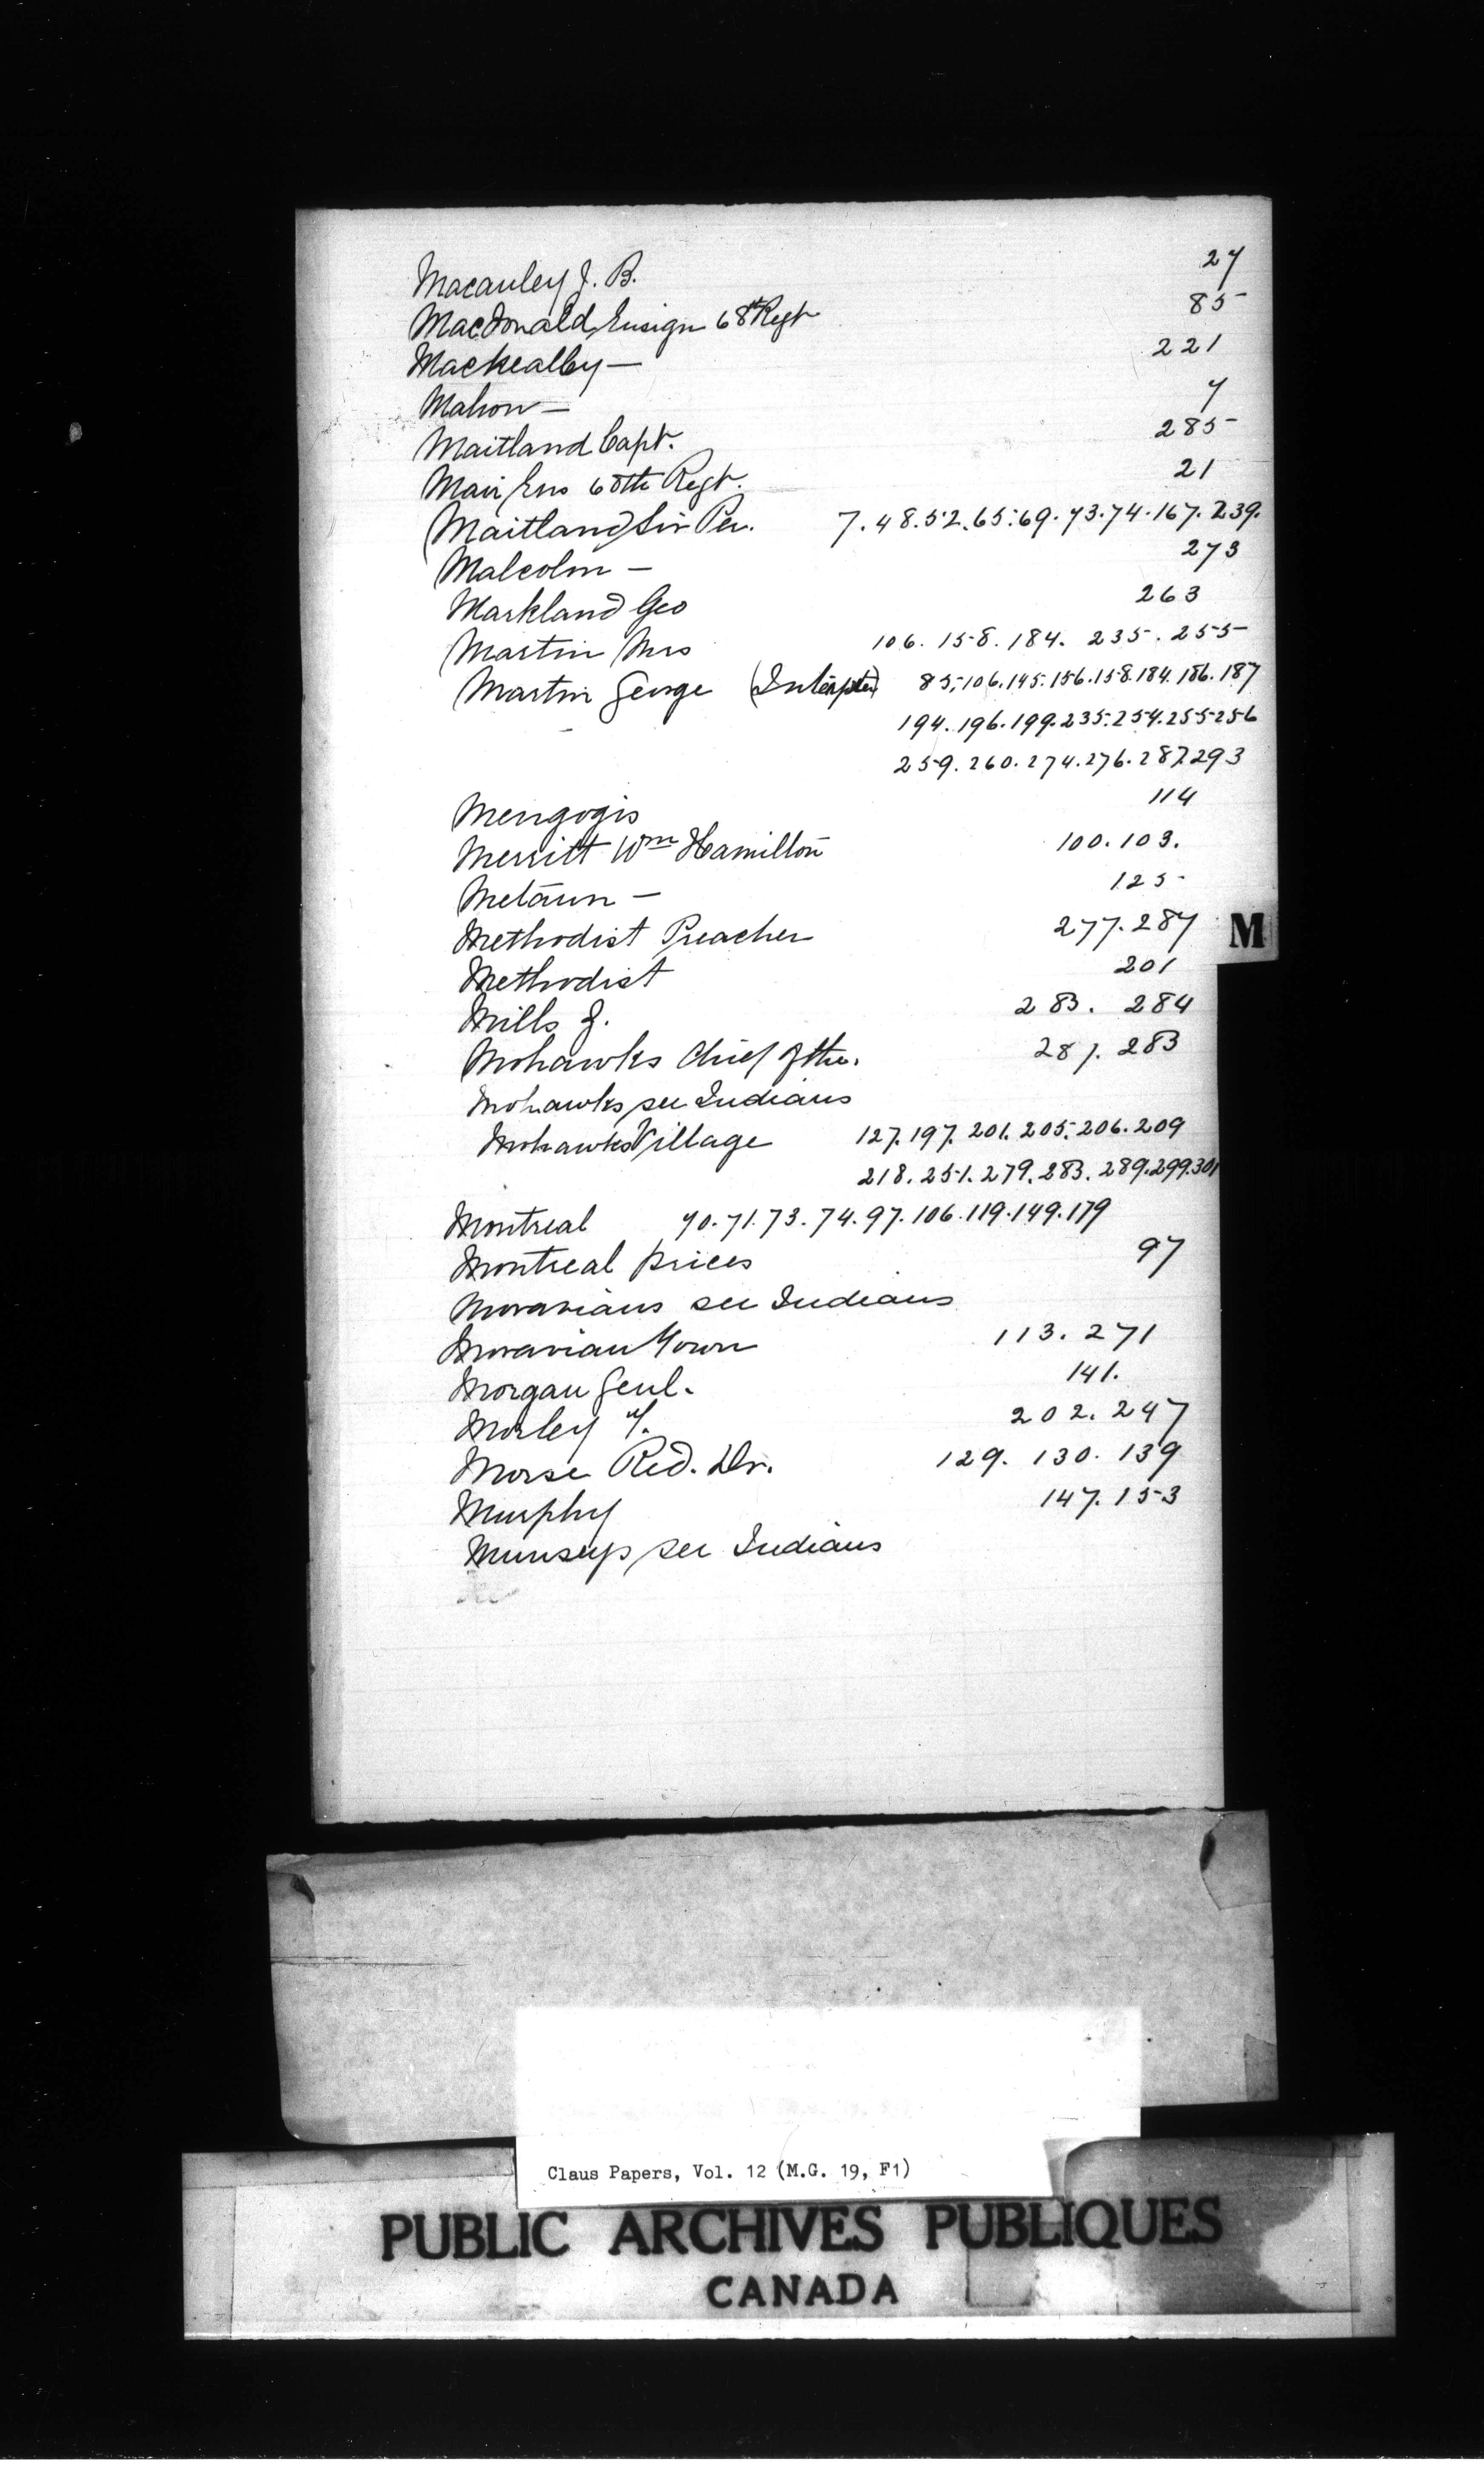 Macauley J. B. 27
MacDonald Ensign 68th Regt 85
Mackealby — 221
Mahon — 7
Maitland Capt. 285
Mair Ens 60th Regt. 21
Maitland Sir Per. 7. 48. 52. 65. 69. 73. 74. 167. 239.
Malcolm — 273
Markland Geo 263
Martin Mrs 106. 158. 184. 235. 255
Martin George (Interpter) 85. 106. 145. 156. 158. 184. 186. 187
194. 196. 199. 235. 254. 255 256
259. 260. 274. 276. 287. 293
Mengogis 114
Merritt Wm Hamilton 100. 103.
Metaun — 125
Methodist Preacher 277. 287
M
Methodist 201
Mills J. 283. 284
Mohawks Chief of the. 281. 283
Mohawks see Indians
Mohawks Village 127. 197. 201. 205. 206. 209
218. 251. 279. 283. 289. 299. 301
Montreal 70. 71. 73. 74. 97. 106. 119. 149. 179
Montreal prices 97
Moravians see Indians
Moravian Town 113. 271
Morgan Genl. 141.
Morley 202. 247
Morse Red. Dr. 129. 130. 139
Murphy 147. 153
Munseys see Indians
Claus Papers, Vol. 12 (M.G. 19, F1)
PUBLIC ARCHIVES PUBLIQUES
CANADA